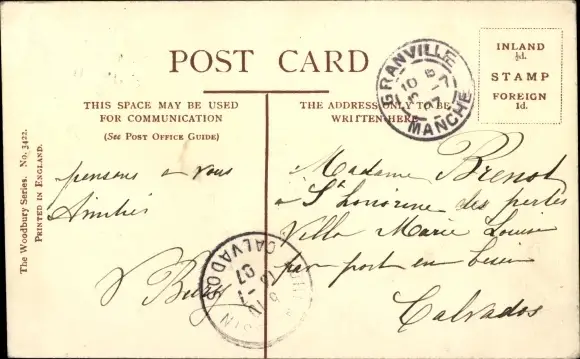 POST CARD
THIS SPACE MAY BE USED
FOR COMMUNICATION
(See Post Office Guide)
THE ADDRESS ONLY TO BE
WRITTEN HERE
INLAND
½d.
STAMP
FOREIGN
1d.
GRANVILLE
MANCHE
The Woodbury Series. No. 3422.
Printed in England.
pensons a vous
Amitiés
Madame Brenot
a St Honorine des pertes
Villa Marie Louise
par port en bessin
Calvados
CALVADOS
07